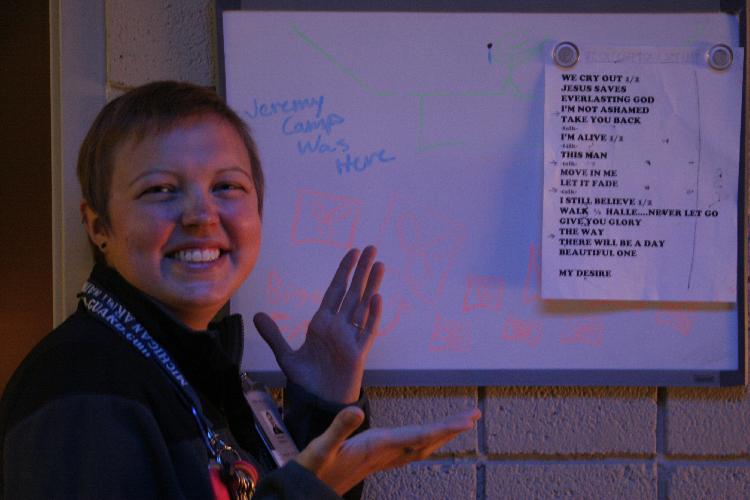 Jeremy
Camp
Was
Here
WE CRY OUT 1/2
JESUS SAVES
EVERLASTING GOD
I'M NOT ASHAMED
TAKE YOU BACK
-talk-
I'M ALIVE 1/2
-talk-
THIS MAN
-talk-
MOVE IN ME
LET IT FADE
-talk-
I STILL BELIEVE 1/2
WALK ½ HALLE....NEVER LET GO
GIVE YOU GLORY
THE WAY
THERE WILL BE A DAY
BEAUTIFUL ONE
MY DESIRE
MICHIGAN ARMY
GUARD